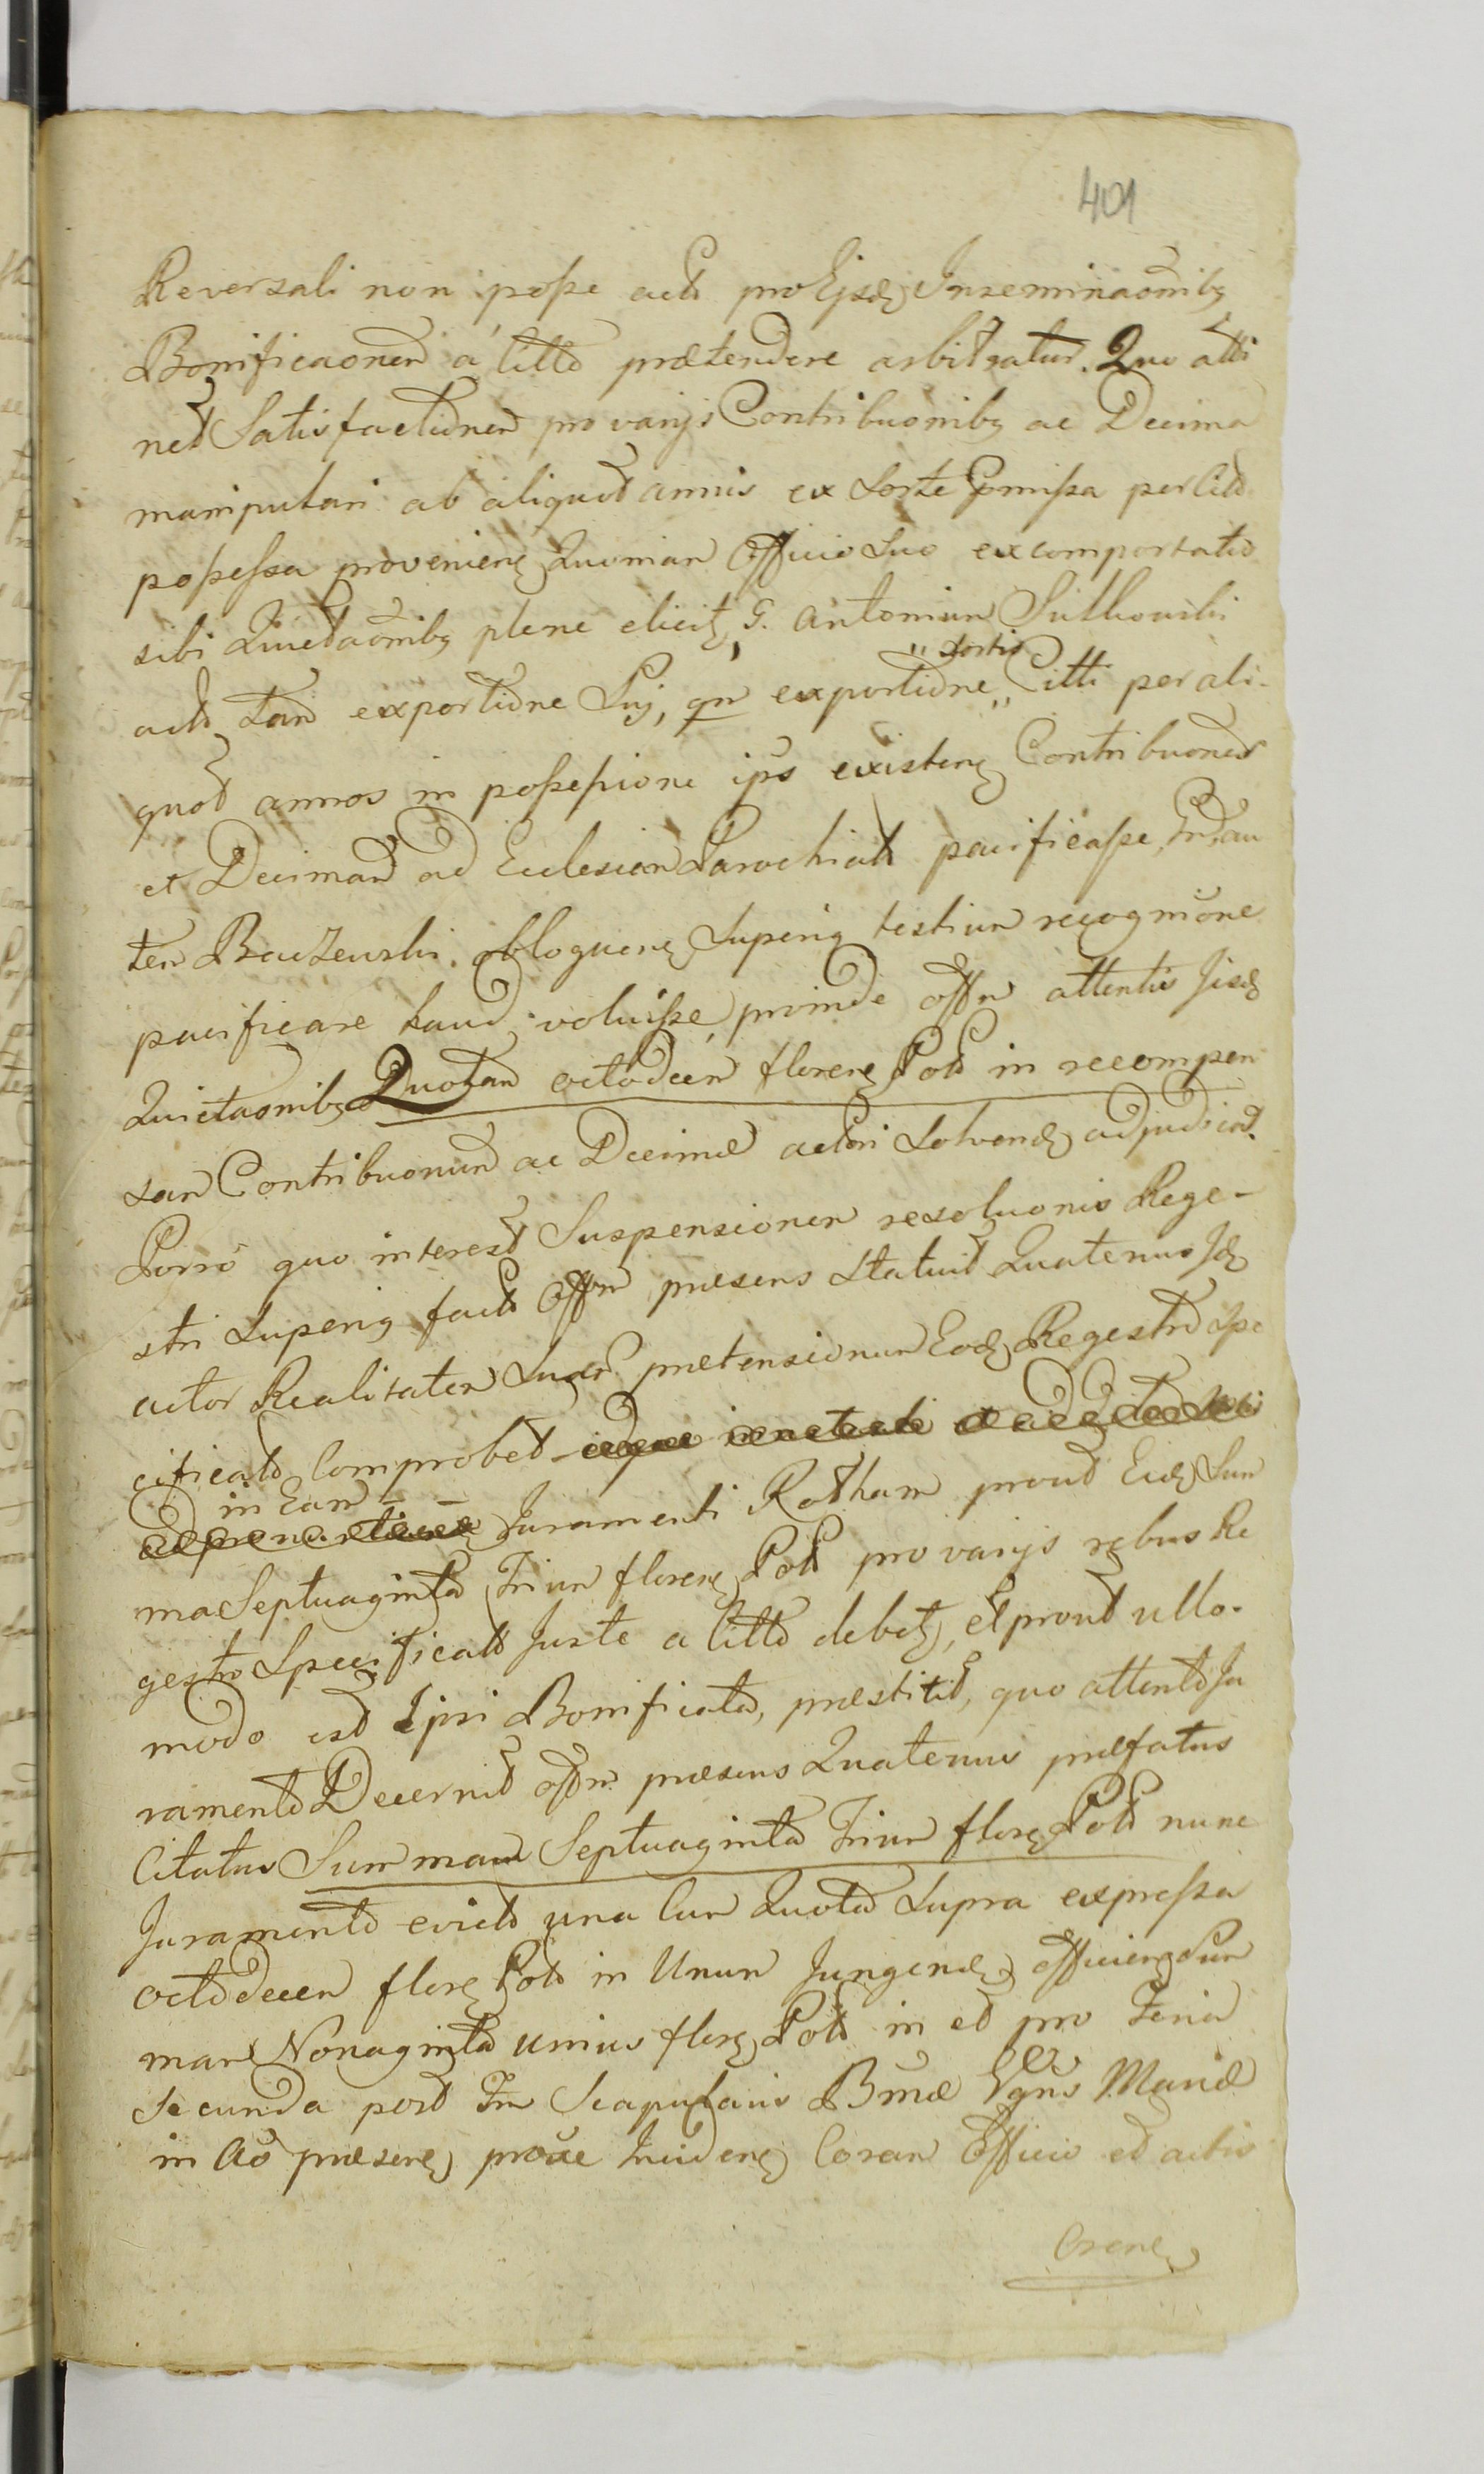 401
Reversali non posse actō pro Ejsdē Inseminaōnibꝫ
Bonificaonem a Cittō prætendere arbitratur. Quo atti
net Satisfactionem pro varijs Contribuonibꝫ ac Decima
manipulari ab aliquot annis ex sorte Comissa per Citō
possessa provenienꝫ Quoniam Officio Suo ex comportatis
sibi Quietaōnibꝫ plene elicitꝫ, G. Antonium Sulkowski
actō tam ex portione Suj, qm ex portione „ sortis „ Citti per ali-
quot annos in possessione ipō existenꝫ Contribuones
et Decimam ad Ecclesiam Parochialē pacificasse, Gnd. au
tem Baczewski obloquenꝫ Superinꝫ testium recognione
pacificare haud voluisse, proinde offm attentis Jisdꝫ
Quietaonibꝫ Quotam octodecem florenꝫ Polō in recompen
sam Contribuonum ac Decimæ actori Solvendꝫ adjudicat.
Porro quo interest Suspensionem resoluonis Rege-
stri Superinꝫ factō Offm præsens Statuit Quatenus Jdꝫ
actor Realitatem Suarū prætensionum Eodꝫ Regestrō Spe
cificatō Comprobet
in Eam Juramenti Rotham prout Eidꝫ Sum
ma Septuaginta Trium florenꝫ Polō pro varijs rebus Re
gestro Specificatō Juste a Cittō debetꝫ, et prout ullo-
modo est Ipsi Bonificata, præstitit, quo attentō Ju
ramentō Decernit offm præsens Quatenus præfatus
Citatus Summam Septuaginta Trium florꝫ Polō nunc
Juramentō evictō una Cum Quota Supra expressa
octodecem florꝫ Polō in Unum Jungendꝫ efficienꝫ Sum
mam Nonaginta unius florꝫ Polō in et pro Feria
secunda post Fm Scapularis Bmæ Vgnis Mariæ
in Aō præsenꝫ proxe Incidenꝫ Coram Officio et actis